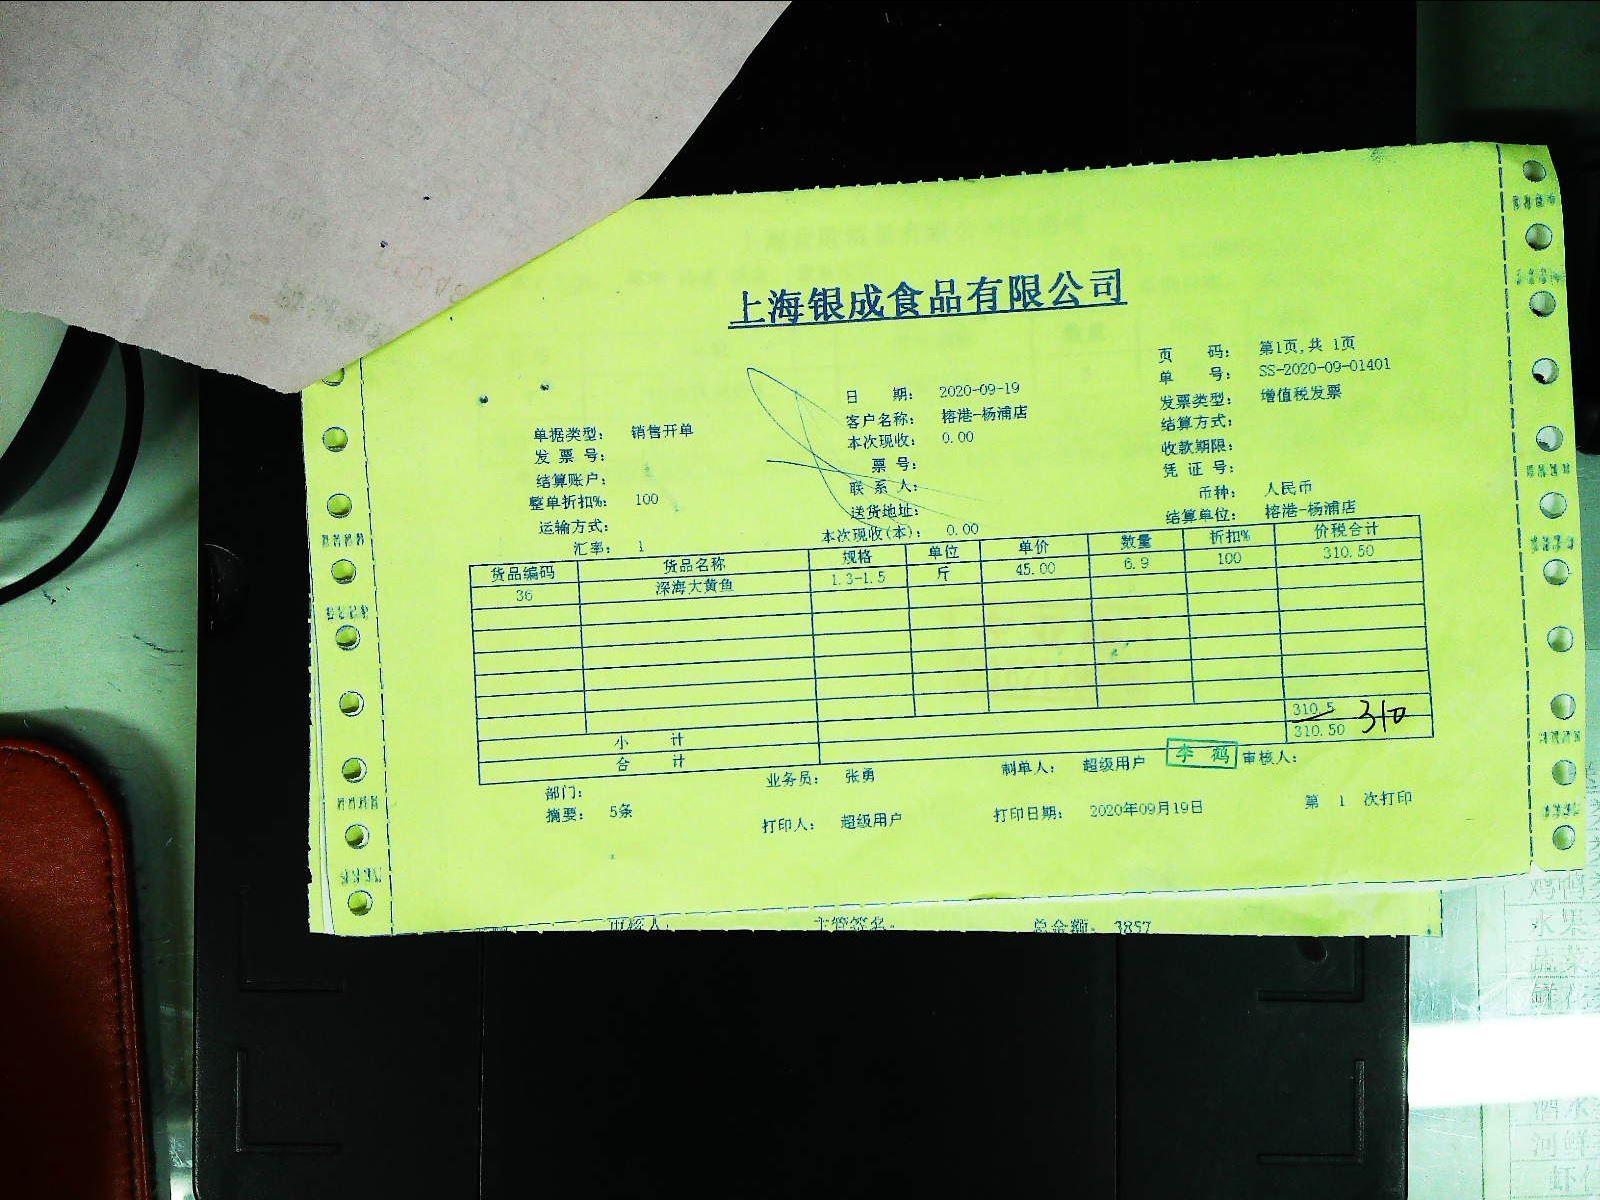 上海银成食品有限公司
页 码： 第1页,共 1页
单 号： SS-2020-09-01401
日 期： 2020-09-19
发票类型： 增值税发票
单据类型： 销售开单
客户名称： 榕港-杨浦店
结算方式：
发 票 号：
本次现收： 0.00
收款期限：
结算账户：
票 号：
凭 证 号：
整单折扣%： 100
联 系 人：
币种： 人民币
运输方式：
送货地址：
结算单位： 榕港-杨浦店
汇率： 1
本次现收(本)： 0.00
货品编码 货品名称 规格 单位 单价 数量 折扣% 价税合计
36 深海大黄鱼 1.3-1.5 斤 45.00 6.9 100 310.50
小 计 310.5
310
合 计 310.50
部门：
业务员： 张勇
制单人： 超级用户
李 鹤
审核人：
摘要： 5条
打印人： 超级用户
打印日期： 2020年09月19日
第 1 次打印
审核人： 主管签名： 总金额： 3857
水果
蔬菜
酒水
河鲜